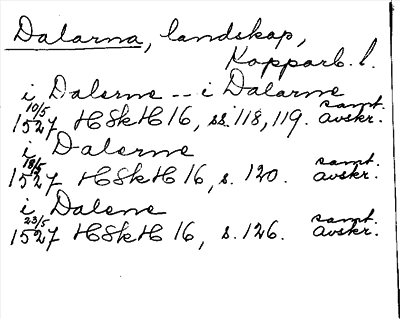 Dalarna, landskap,
Kopparb. l.
i Dalerne -- i Dalarne
10/5 1527 HSkH 16, ss. 118, 119. samt. avskr.
i Dalerne
18/5 1527 HSkH 16, s. 120. samt. avskr.
i Dalene
23/5 1527 HSkH 16, s. 126. samt. avskr.